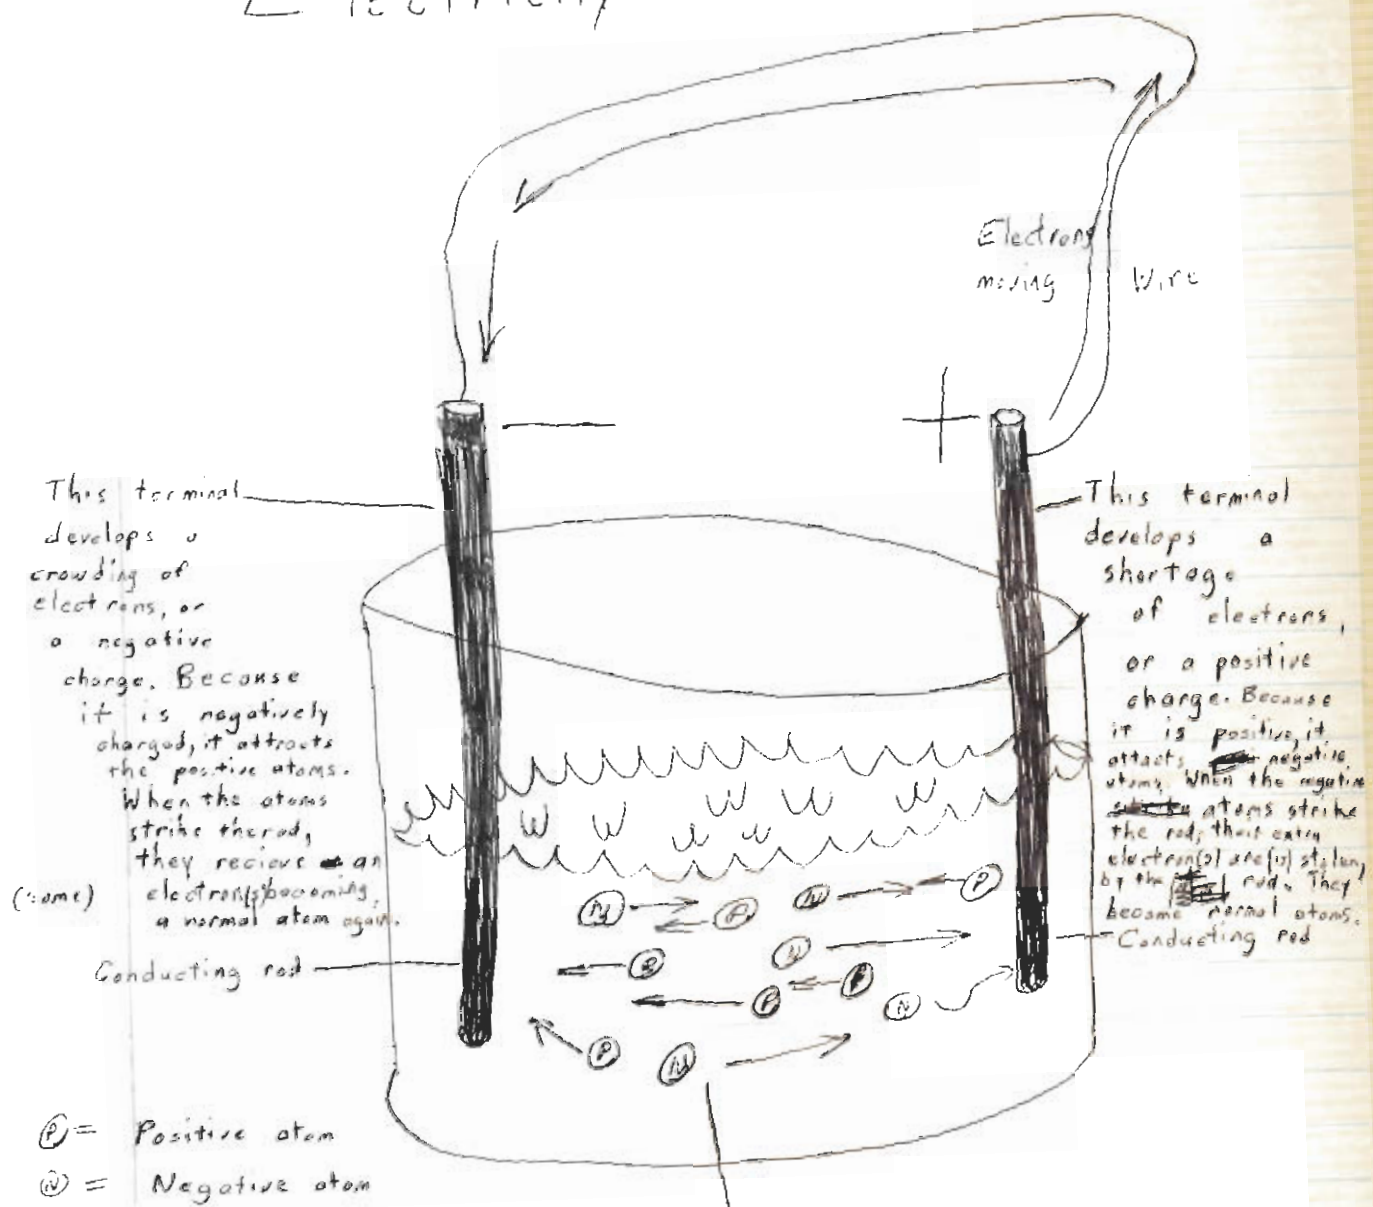 Electricity
Electrons
moving
Wire
This terminal
develops a
crowding of
electrons, or
a negative
charge. Because
it is negatively
charged, it attracts
the positive atoms.
When the atoms
strike the rod,
they recieve an
(some) electron(s) becoming
a normal atom again.
Conducting rod
This terminal
develops a
shortage
of electrons,
or a positive
charge. Because
it is positive, it
attacts negative
atoms. When the negative
atoms strike
the rod, their
electron(s) are(is) stolen,
by the rod. They
become normal atoms.
Conducting rod
N
P
N
P
N
P
P
P
N
P
N
P = Positive atom
N = Negative atom